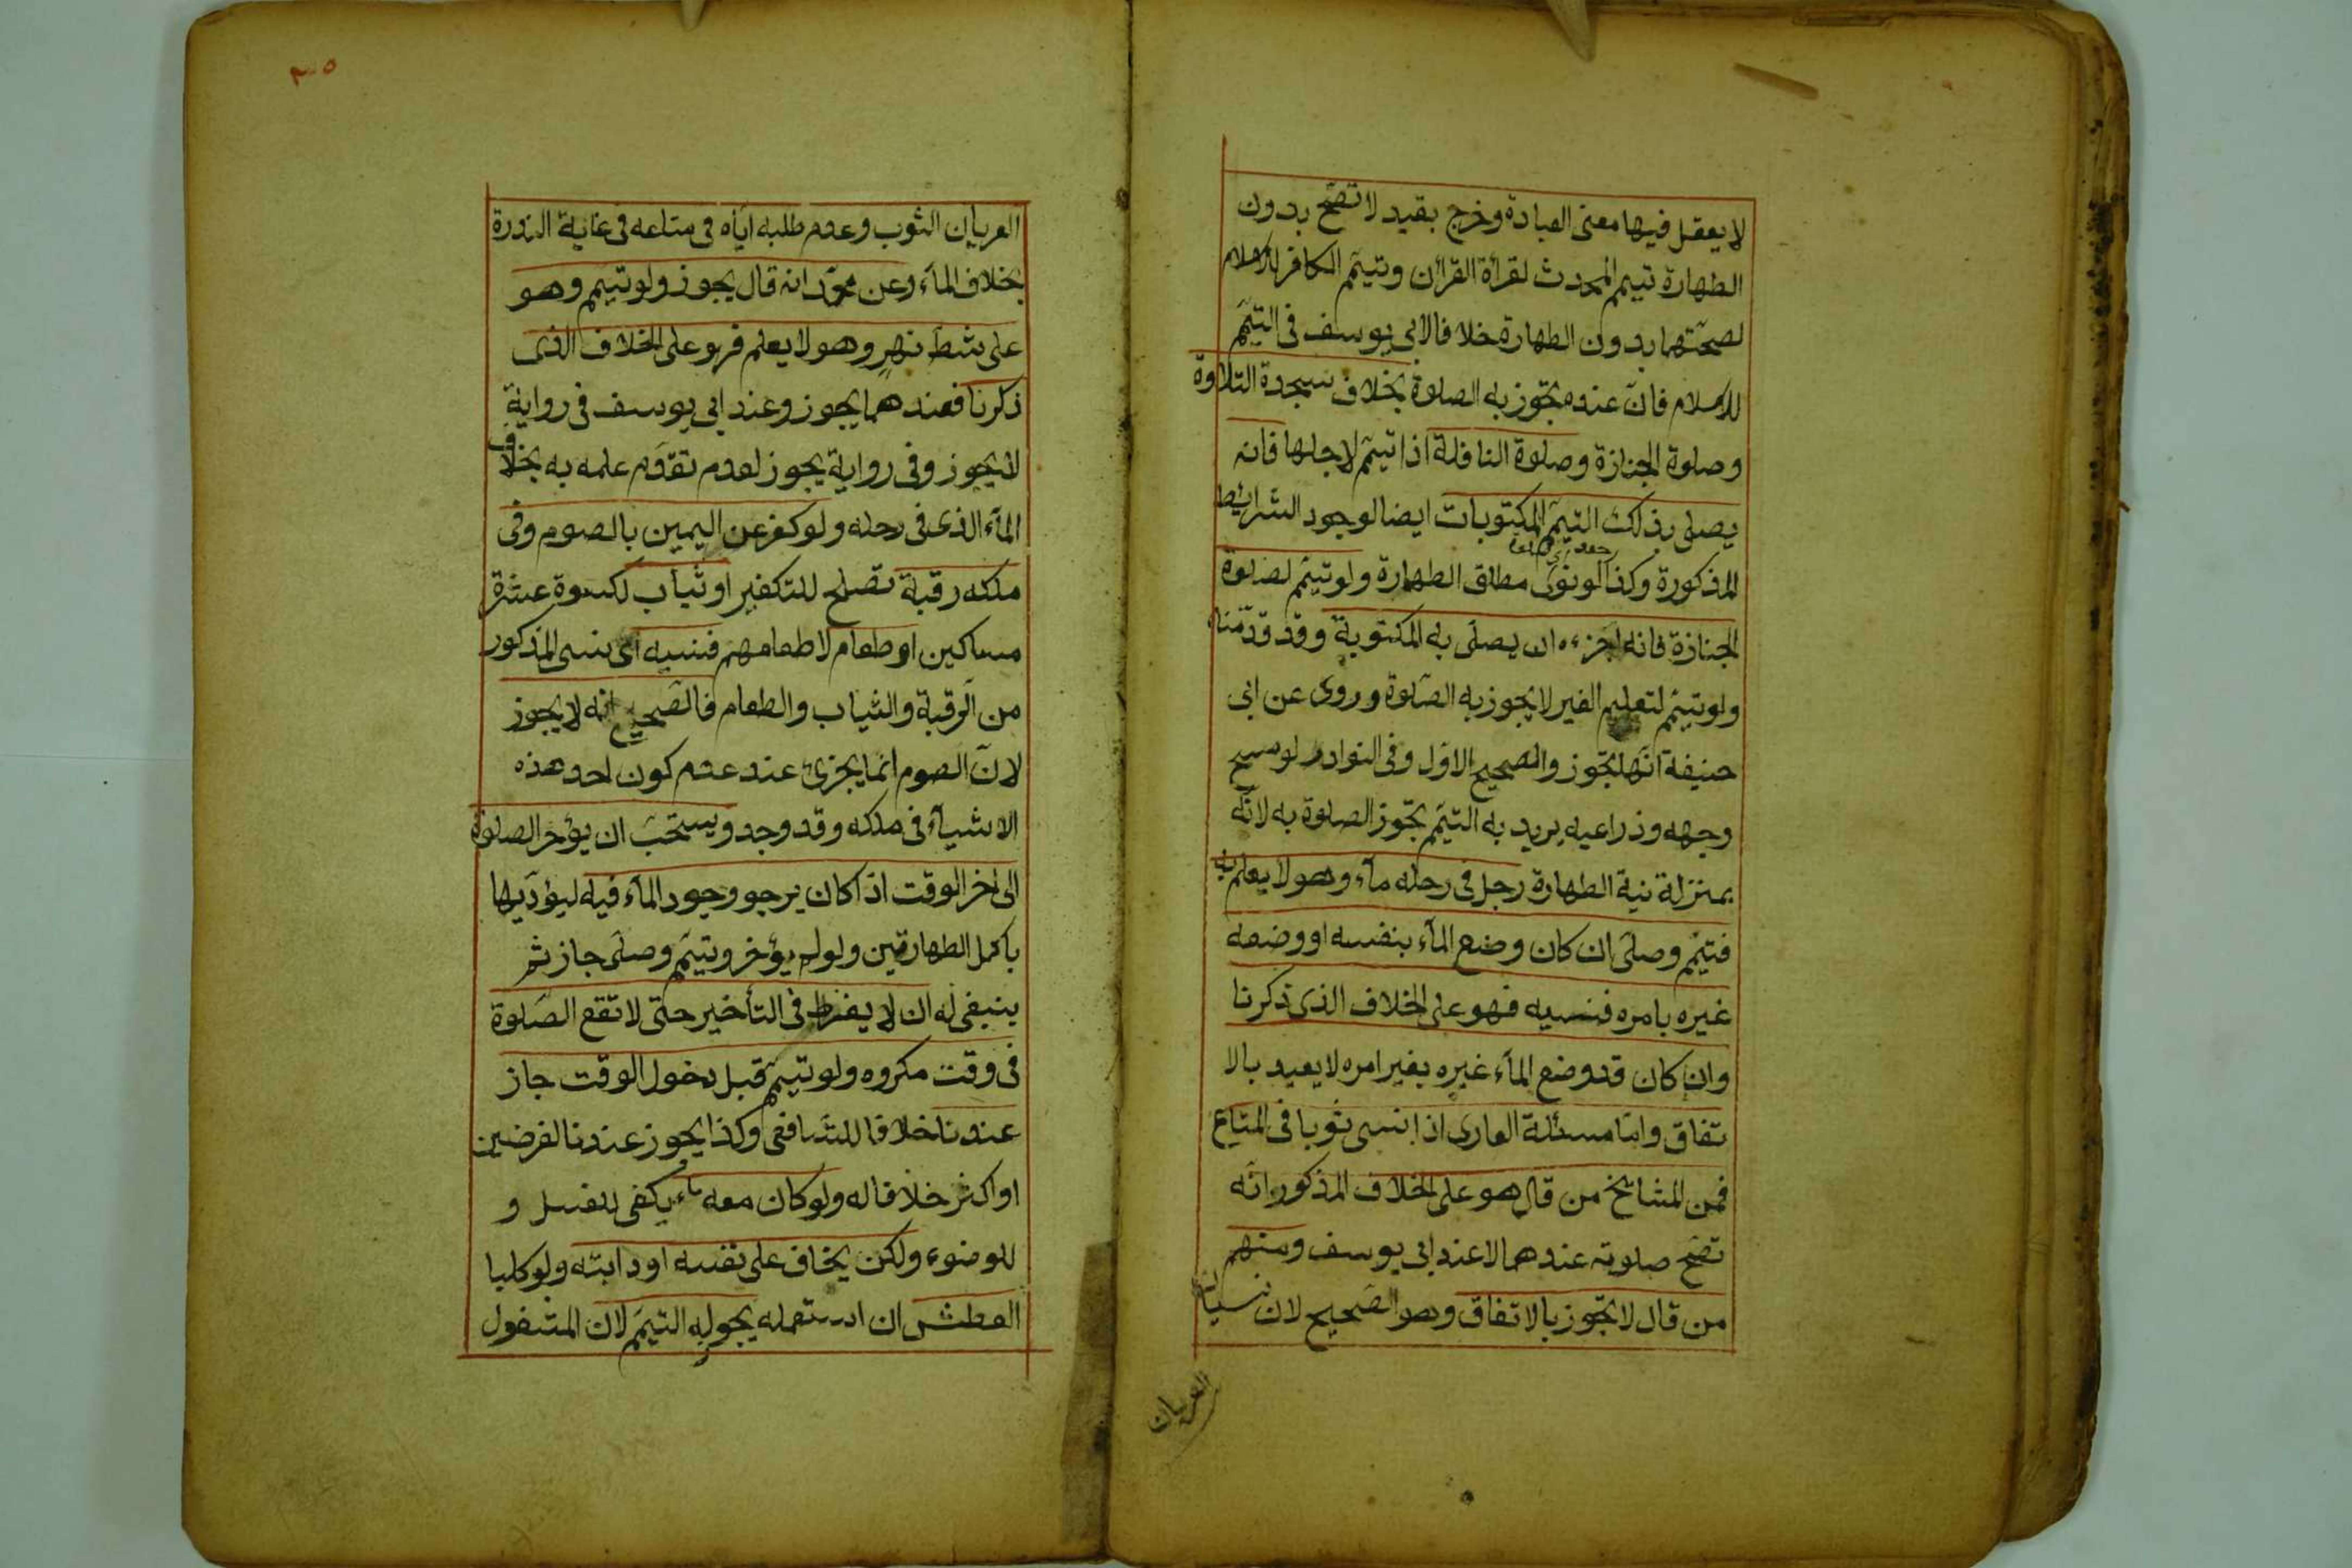 لا يعقل فيها معنى العبادة وخرج بقيد لا تصح بدون
الطهارة تيمم المحدث لقرأة القرأن وتيمّم الكافر للاسلام
لصحّتهما بدون الطهارة خلافا لابي يوسف فى التيمّم
للاسلام فانّ عنده تجوز به الصلوة بخلاف سجدة التلاوة
وصلوة الجنازة وصلوة النافلة اذا تيمّم لاجلها فانه
يصلى بذلك التيمّم المكتوبات ايضا لوجود الشرايط
المذكورة وكذا لو نوى مطلق الطهارة ولو تيمّم لصلوة
الجنازة فانه اجزءه ان يصلى به المكتوبة وقد قدّمناه
ولو تيمّم لتعليم الغير لا يجوز به الصّلوة وروى عن ابى
حنيفة انّها تجوز والصحيح الاوّل وفى النوادر لو مسح
وجهه وذراعيه يريد به التيمّم تجوز الصلوة به لانّه
بمنزلة نية الطهارة رجل فى رحله مآء وهو لا يعلم به
فتيمّم وصلى ان كان وضع المآء بنفسه او وضعه
غيره بامره فنسيه فهو على الخلاف الذى ذكرنا
وان كان قد وضع المآء غيره بغير امره لا يعيد بالا
تفاق وامّا مسئلة العارى اذا نسى ثوبا فى المتاع
فمن المشايخ من قال هو على الخلاف المذكور انّه
تصحّ صلوته عندهما لا عند ابى يوسف ومنهم
من قال لا تجوز بالاتفاق وهو الصّحيح لان نسيان
العريان
٢٠٥
العريان الثوب وعدم طلبه ايّاه فى متاعه فى غاية الندرة
بخلاف المآء وعن محمّد انه قال يجوز ولو تيمم وهو
على شطّ نهر وهو لا يعلم فهو على الخلاف الذى
ذكرنا فعندهما يجوز وعند ابى يوسف فى رواية
لا يجوز وفى رواية يجوز لعدم تقدّم علمه به بخلاف
المآء الذى فى رحله ولو كفر عن اليمين بالصوم وفى
ملكه رقبة تصلح للتكفير او ثياب لكسوة عشرة
مساكين او طعام لاطعامهم فنسيه اى نسى المذكور
من الرّقبة والثياب والطعام فالصّحيح انه لا يجوز
لانّ الصوم انما يجزئ عند عدم كون احد هذه
الاشيآء فى ملكه وقد وجد ويستحبّ ان يؤخر الصلوة
الى اخر الوقت اذا كان يرجو وجود المآء فيه ليؤدّيها
باكمل الطهارتين ولو لم يؤخر وتيمّم وصلّى جاز ثم
ينبغى له ان لا يفرط فى التأخير حتى لا تقع الصّلوة
فى وقت مكروه ولو تيمّم قبل دخول الوقت جاز
عندنا خلافا للشافعى وكذا يجوز عندنا لفرضين
او اكثر خلافا له ولو كان معه مآء يكفى للغسل و
للوضوء ولكن يخاف على نفسه او دابته ولو كلبا
العطش ان استعمله يجوز له التيمّم لان المشغول